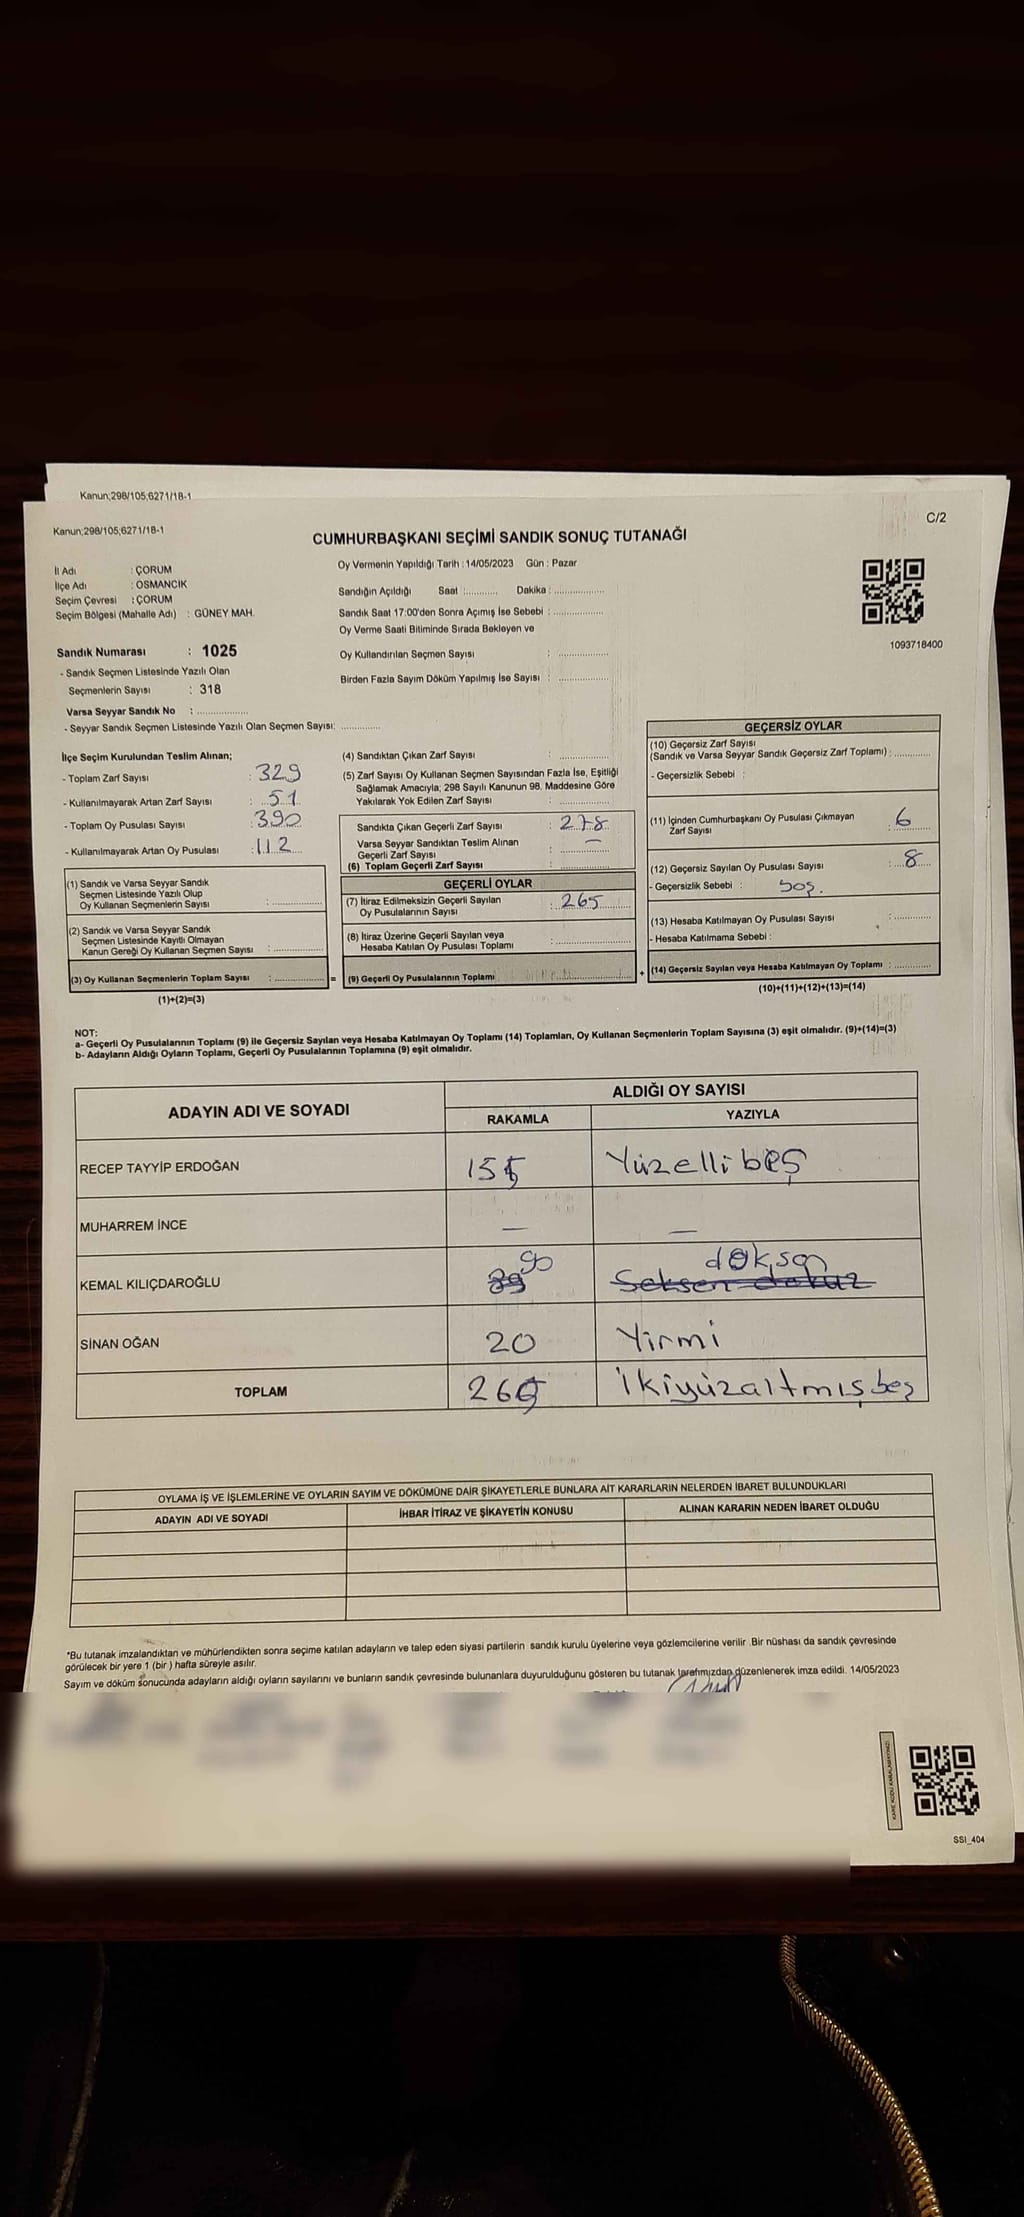 Kanun;298/105;6271/18-1
Kanun;298/105;6271/18-1
C/2
CUMHURBAŞKANI SEÇİMİ SANDIK SONUÇ TUTANAĞI
İl Adı : ÇORUM
İlçe Adı : OSMANCIK
Seçim Çevresi : ÇORUM
Seçim Bölgesi (Mahalle Adı) : GÜNEY MAH.
Oy Vermenin Yapıldığı Tarih : 14/05/2023 Gün : Pazar
Sandığın Açıldığı Saat :............ Dakika :..................
Sandık Saat 17:00'den Sonra Açımış İse Sebebi :..................
Oy Verme Saati Bitiminde Sırada Bekleyen ve
Oy Kullandırılan Seçmen Sayısı : ..................
Birden Fazla Sayım Döküm Yapılmış İse Sayısı : ..................
1093718400
Sandık Numarası : 1025
- Sandık Seçmen Listesinde Yazılı Olan
Seçmenlerin Sayısı : 318
Varsa Seyyar Sandık No : ..................
- Seyyar Sandık Seçmen Listesinde Yazılı Olan Seçmen Sayısı: ..............
İlçe Seçim Kurulundan Teslim Alınan;
- Toplam Zarf Sayısı : 329
- Kullanılmayarak Artan Zarf Sayısı : 51
- Toplam Oy Pusulası Sayısı : 390
- Kullanılmayarak Artan Oy Pusulası : 112
(1) Sandık ve Varsa Seyyar Sandık
Seçmen Listesinde Yazılı Olup
Oy Kullanan Seçmenlerin Sayısı : ..................
(2) Sandık ve Varsa Seyyar Sandık
Seçmen Listesinde Kayıtlı Olmayan
Kanun Gereği Oy Kullanan Seçmen Sayısı : ..................
(3) Oy Kullanan Seçmenlerin Toplam Sayısı : ..................
(1)+(2)=(3)
=
(4) Sandıktan Çıkan Zarf Sayısı : ..................
(5) Zarf Sayısı Oy Kullanan Seçmen Sayısından Fazla İse, Eşitliği
Sağlamak Amacıyla; 298 Sayılı Kanunun 98. Maddesine Göre
Yakılarak Yok Edilen Zarf Sayısı : ..................
Sandıkta Çıkan Geçerli Zarf Sayısı : 278
Varsa Seyyar Sandıktan Teslim Alınan : —
Geçerli Zarf Sayısı
(6) Toplam Geçerli Zarf Sayısı : ..................
GEÇERLİ OYLAR
(7) İtiraz Edilmeksizin Geçerli Sayılan : 265
Oy Pusulalarının Sayısı
(8) İtiraz Üzerine Geçerli Sayılan veya
Hesaba Katılan Oy Pusulası Toplamı : ..................
(9) Geçerli Oy Pusulalarının Toplamı
+
GEÇERSİZ OYLAR
(10) Geçersiz Zarf Sayısı
(Sandık ve Varsa Seyyar Sandık Geçersiz Zarf Toplamı) : ............
- Geçersizlik Sebebi :
(11) İçinden Cumhurbaşkanı Oy Pusulası Çıkmayan : 6
Zarf Sayısı
(12) Geçersiz Sayılan Oy Pusulası Sayısı : 8
- Geçersizlik Sebebi :
(13) Hesaba Katılmayan Oy Pusulası Sayısı : ............
- Hesaba Katılmama Sebebi :
(14) Geçersiz Sayılan veya Hesaba Katılmayan Oy Toplamı : ............
(10)+(11)+(12)+(13)=(14)
NOT:
a- Geçerli Oy Pusulalarının Toplamı (9) ile Geçersiz Sayılan veya Hesaba Katılmayan Oy Toplamı (14) Toplamları, Oy Kullanan Seçmenlerin Toplam Sayısına (3) eşit olmalıdır. (9)+(14)=(3)
b- Adayların Aldığı Oyların Toplamı, Geçerli Oy Pusulalarının Toplamına (9) eşit olmalıdır.
ADAYIN ADI VE SOYADI
ALDIĞI OY SAYISI
RAKAMLA YAZIYLA
RECEP TAYYİP ERDOĞAN 155 Yüzelli beş
MUHARREM İNCE — —
KEMAL KILIÇDAROĞLU 89 90 Seksen dokuz doksan
SİNAN OĞAN 20 Yirmi
TOPLAM 265 İkiyüzaltmışbeş
OYLAMA İŞ VE İŞLEMLERİNE VE OYLARIN SAYIM VE DÖKÜMÜNE DAİR ŞİKAYETLERLE BUNLARA AİT KARARLARIN NELERDEN İBARET BULUNDUKLARI
ADAYIN ADI VE SOYADI İHBAR İTİRAZ VE ŞİKAYETİN KONUSU ALINAN KARARIN NEDEN İBARET OLDUĞU
*Bu tutanak imzalandıktan ve mühürlendikten sonra seçime katılan adayların ve talep eden siyasi partilerin sandık kurulu üyelerine veya gözlemcilerine verilir .Bir nüshası da sandık çevresinde
görülecek bir yere 1 (bir ) hafta süreyle asılır.
Sayım ve döküm sonucunda adayların aldığı oyların sayılarını ve bunların sandık çevresinde bulunanlara duyurulduğunu gösteren bu tutanak tarafımızdan düzenlenerek imza edildi. 14/05/2023
KARE KODU KARALAMAYINIZ!
SSI_404